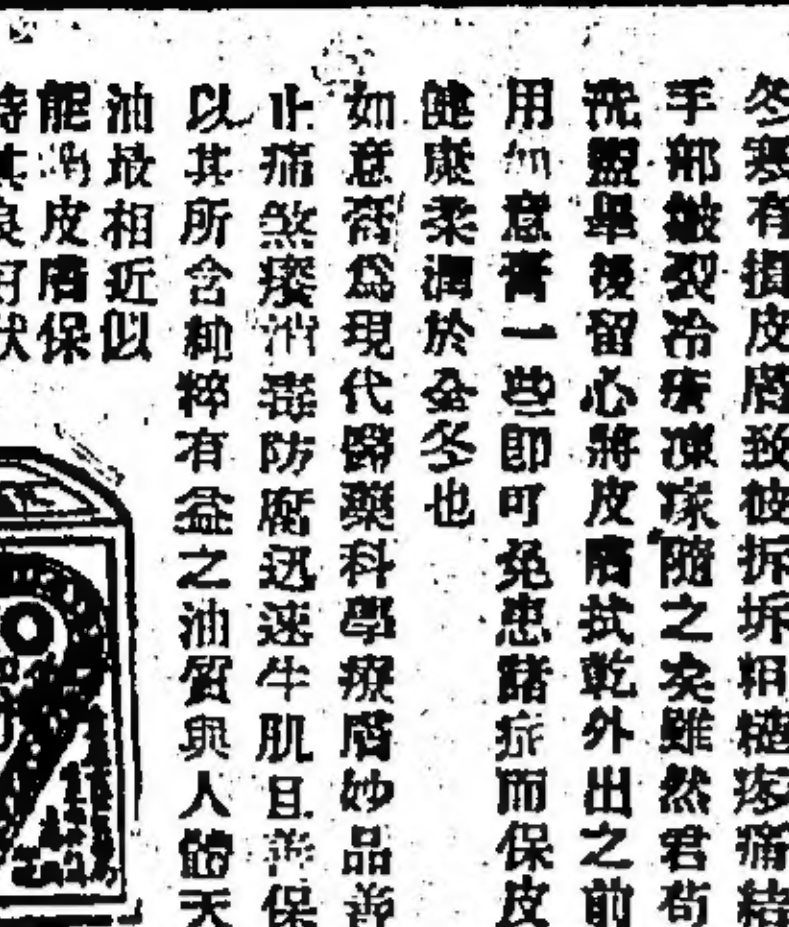 冬寒有損皮膚致使拆坼粗糙疼痛結
手部皴裂冷瘡凍瘃隨之矣雖然君苟
洗盥畢後留心將皮膚拭乾外出之前
用如意膏一些即可免患諸症而保皮
健康柔潤於全冬也
如意膏為現代醫藥科學療膚妙品善
止痛煞癢消毒防腐迅速生肌且善保
以其所含純粹有益之油質與人體天
油最相近似
能 皮膚保
時其良好狀